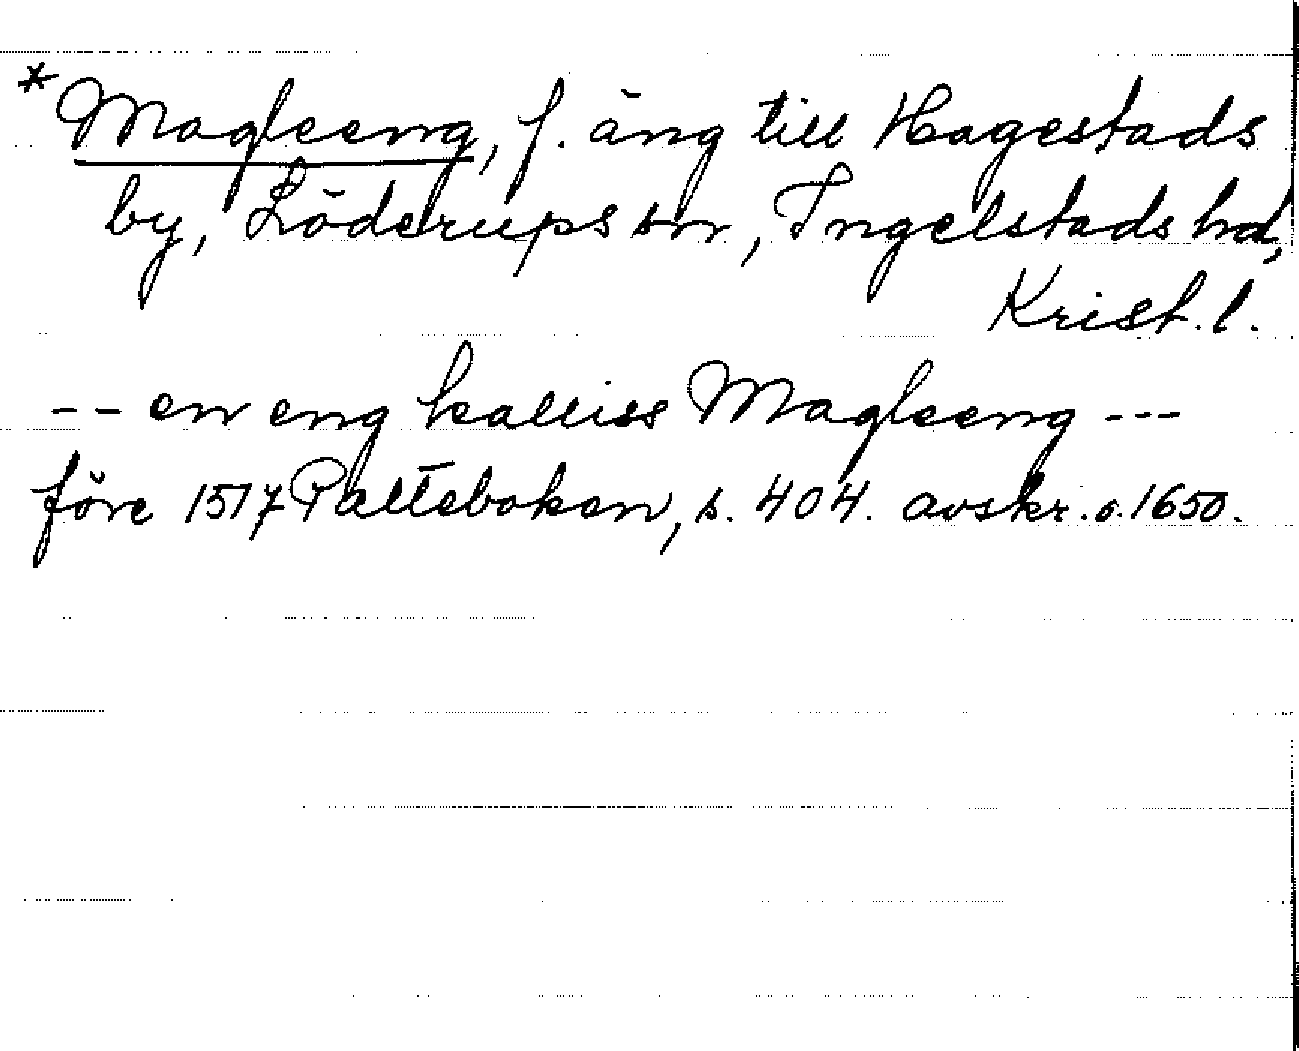 *Magleeng, f. äng till Hagestads
by, Löderups sn, Ingelstads hd,
Krist. l.
-- en eng kalliss Magleeng ---
före 1517 Palteboken, s. 404. avskr. o. 1650.